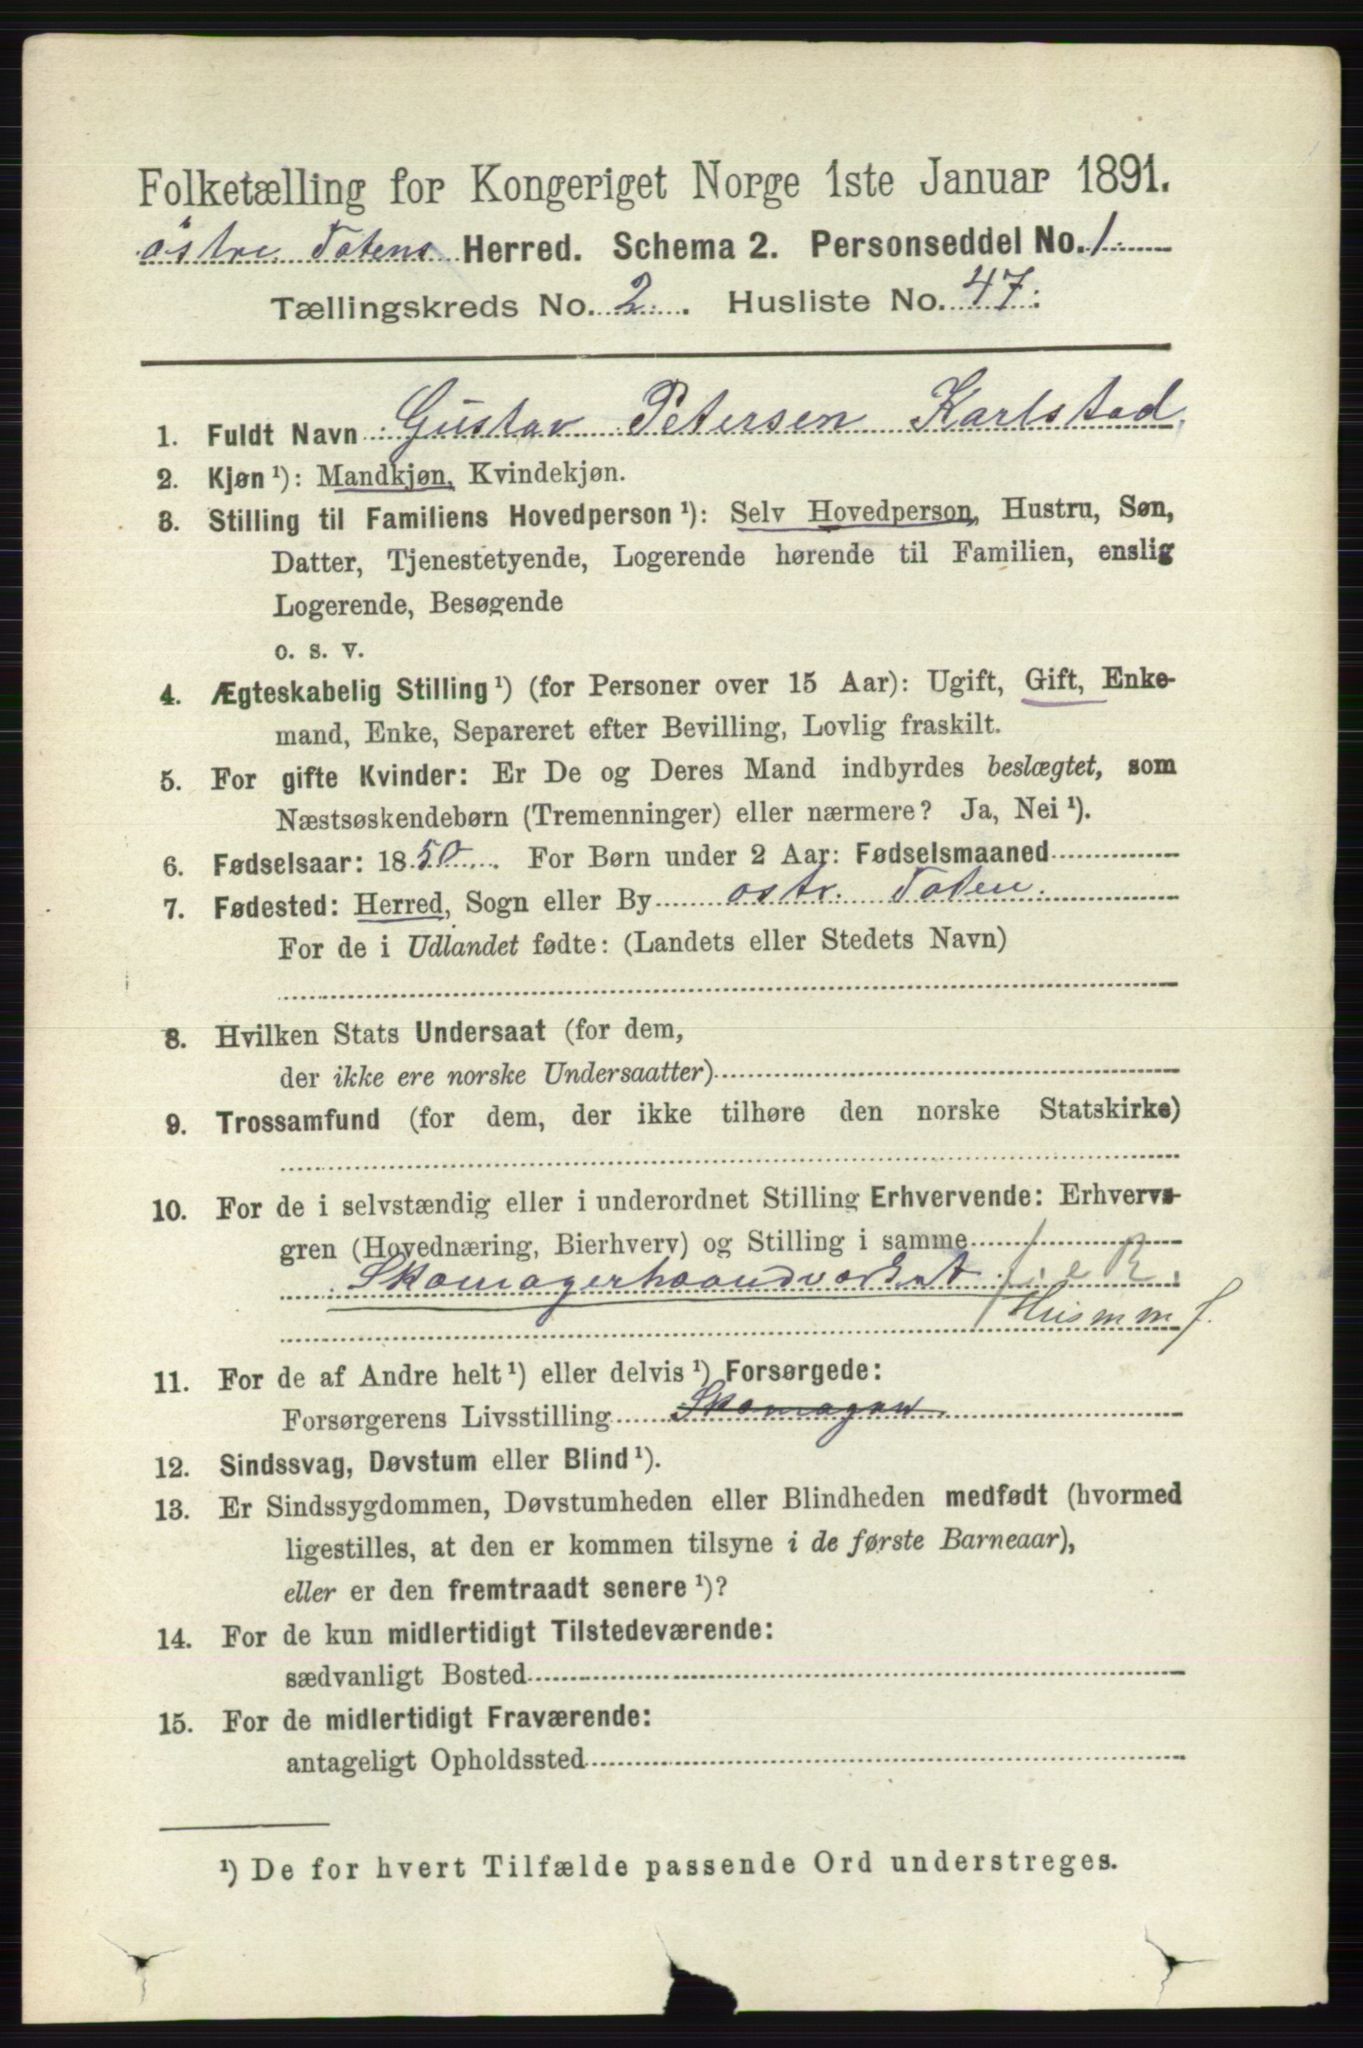 Folketælling for Kongeriget Norge 1ste Januar 1891.
östre Totens Herred. Schema 2. Personseddel No. 1.
Tællingskreds No. 2. Husliste No. 47:
1. Fuldt Navn Gustav Petersen Karlstad
2. Kjøn ¹): Mandkjøn, Kvindekjøn.
3. Stilling til Familiens Hovedperson ¹): Selv Hovedperson, Hustru, Søn,
Datter, Tjenestetyende, Logerende hørende til Familien, enslig
Logerende, Besøgende
o. s. v.
4. Ægteskabelig Stilling ¹) (for Personer over 15 Aar): Ugift, Gift, Enke-
mand, Enke, Separeret efter Bevilling, Lovlig fraskilt.
5. For gifte Kvinder: Er De og Deres Mand indbyrdes beslægtet, som
Næstsøskendebørn (Tremenninger) eller nærmere? Ja, Nei ¹).
6. Fødselsaar: 1850. For Børn under 2 Aar: Fødselsmaaned
7. Fødested: Herred, Sogn eller By ostr. Toten.
For de i Udlandet fødte: (Landets eller Stedets Navn)
8. Hvilken Stats Undersaat (for dem,
der ikke ere norske Undersaatter)
9. Trossamfund (for dem, der ikke tilhøre den norske Statskirke)
10. For de i selvstændig eller i underordnet Stilling Erhvervende: Erhvervs-
gren (Hovednæring, Bierhverv) og Stilling i samme
Skomagerhaandværket f. e R.
Husm m f.
11. For de af Andre helt ¹) eller delvis ¹) Forsørgede:
Forsørgerens Livsstilling Skomager
12. Sindssvag, Døvstum eller Blind ¹).
13. Er Sindssygdommen, Døvstumheden eller Blindheden medfødt (hvormed
ligestilles, at den er kommen tilsyne i de første Barneaar),
eller er den fremtraadt senere ¹)?
14. For de kun midlertidigt Tilstedeværende:
sædvanligt Bosted
15. For de midlertidigt Fraværende:
antageligt Opholdssted
¹) De for hvert Tilfælde passende Ord understreges.